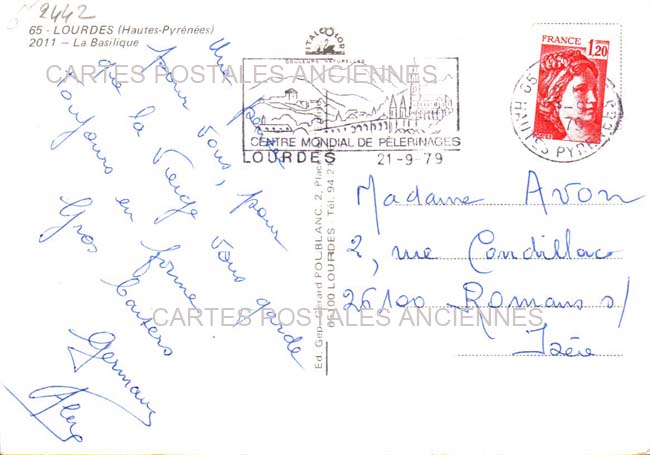 2442
65 - LOURDES (Hautes-Pyrénées)
2011 — La Basilique
Une pensée
pour vous, pour
que la Vierge vous garde
toujours en forme
Gros baisers
Germaine
ITALCOLOR
COULEURS NATURELLES
CENTRE MONDIAL DE PÈLERINAGES
LOURDES 21-9-79
FRANCE 1,20
65
HAUTES PYR
Ed. Gep - Gérard POUBLANC, 2, Place
65100 LOURDES - Tél. 94 2
Madame AVON
2, rue Condillac
26100 - Romans s/
Isère
CARTES POSTALES ANCIENNES
CARTES POSTALES ANCIENNES